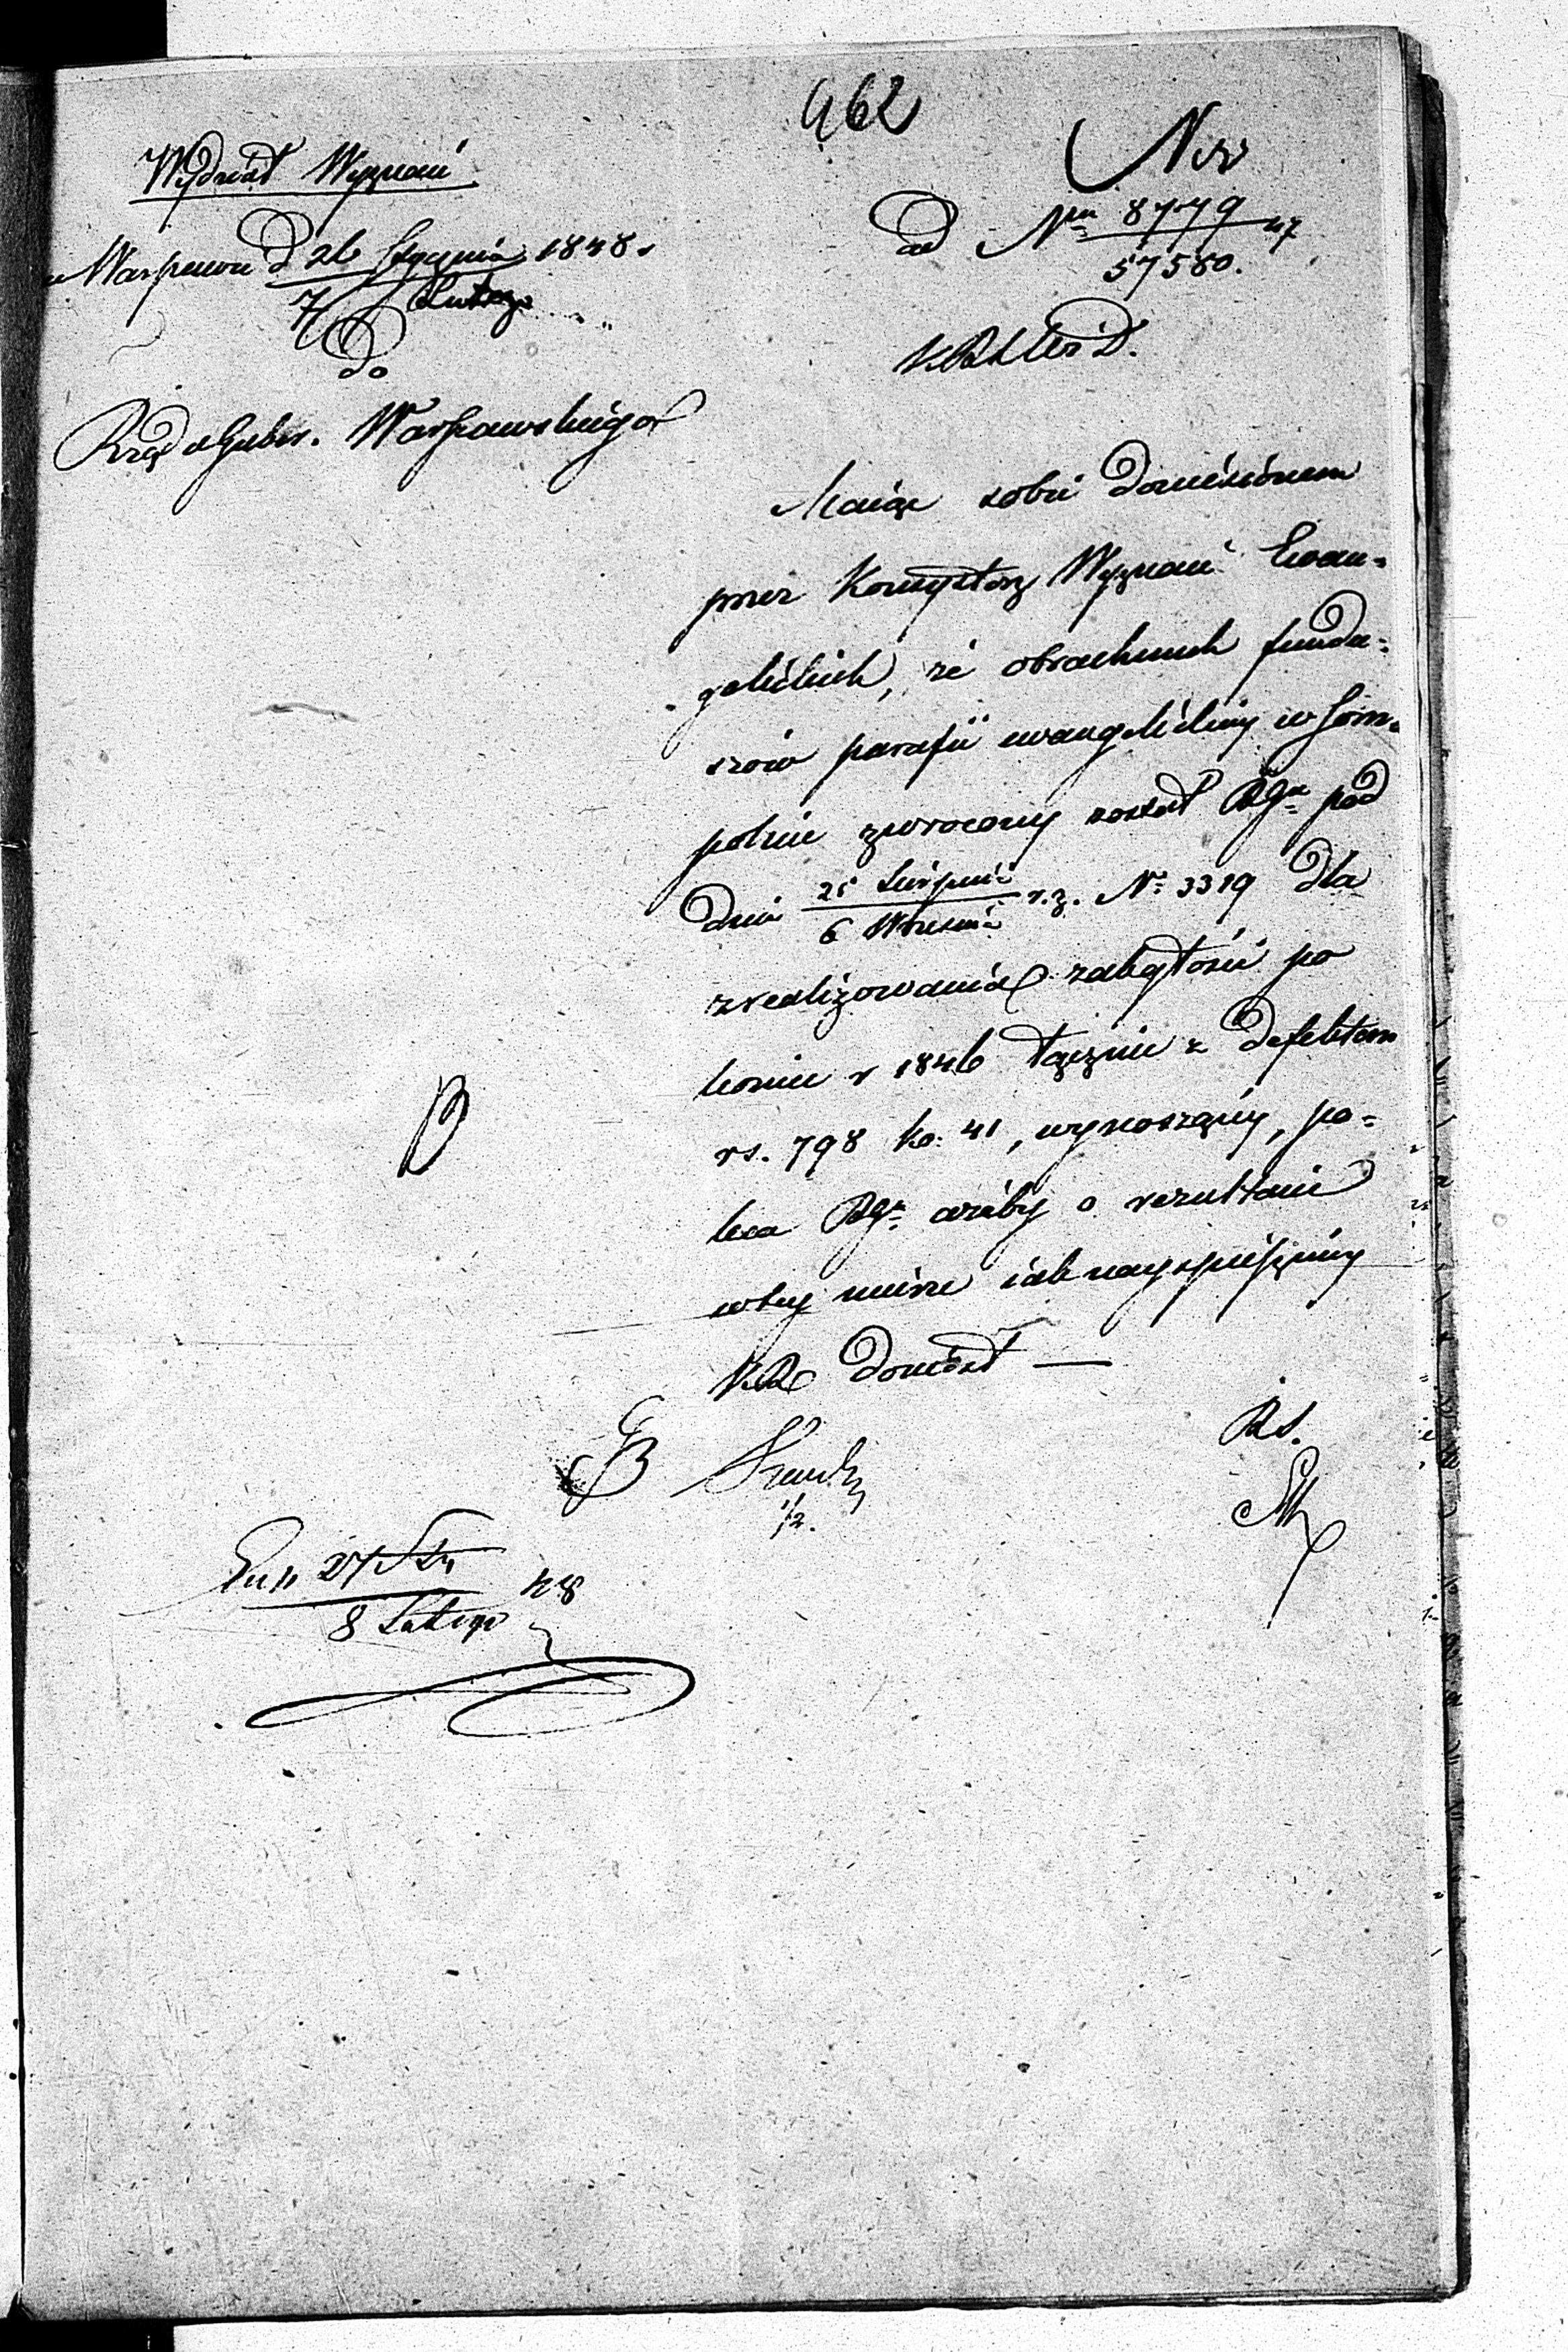 462
Wydział Wyznań
w Warszawie d 26 Stycznia 1848.
7 Lutego
do
Rządu Guber. Warszawskiego
Nro
ad Nru 8779 47
57580.
Maiąc sobie doniesionem
przez Konsystorz Wyznań Ewan-
gelickich, że obrachunek fundu-
szów parafii ewangelickiey w Som-
polnie zwrocony został RGu pod
dniu 25 Sierpnia r.z. No 3319 dla
6 Września
zrealizowania zaległości po
koniec r 1846 łącznie z defektem
rs. 798 ko: 41, wynoszący, po-
leca RGu ażeby o rezultacie
w tey mierze iak nayspieszniey
KR doniosł —
RS.
1/2.
27 Sty 48
8 Lutego